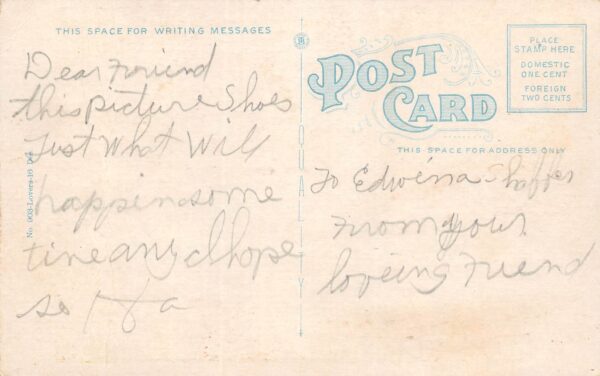 THIS SPACE FOR WRITING MESSAGES
Dear Friend
this picture Shoes
Just What Will
happin some
time and I hope
so Ha
No. 903-Lovers-10
QUALITY
POST
CARD
THIS SPACE FOR ADDRESS ONLY
PLACE
STAMP HERE
DOMESTIC
ONE CENT
FOREIGN
TWO CENTS
To Edwina Shaffer
From your
loveing Friend